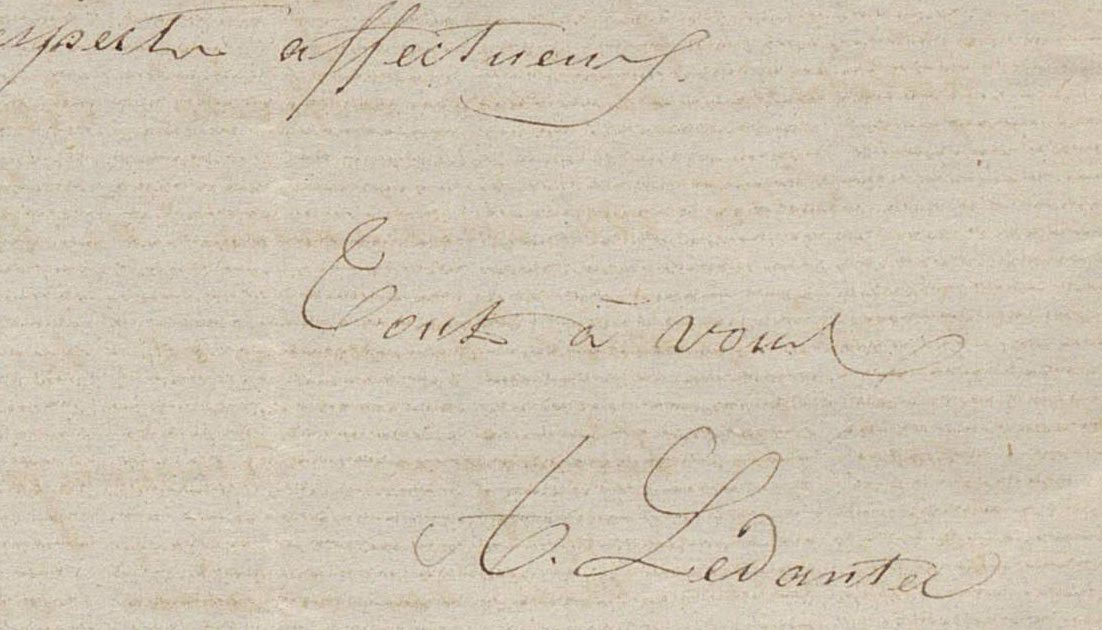 respects affectueux.
Tout à vous
A. Ledantec